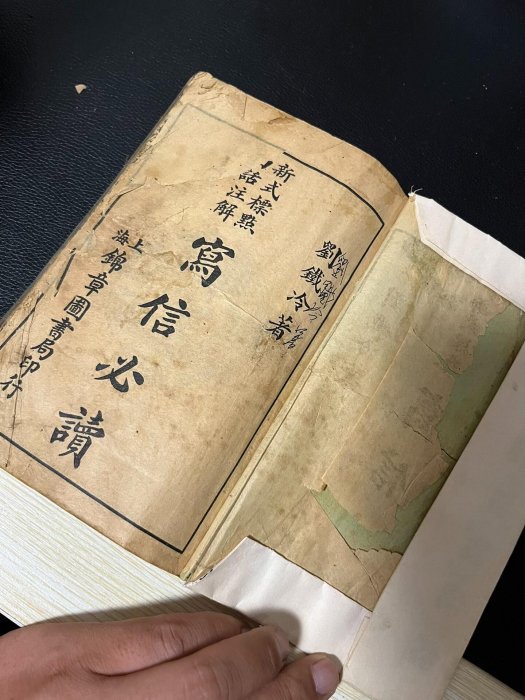 劉鐵冷著
新式標點
話注解
寫信必讀
上海錦章圖書局印行